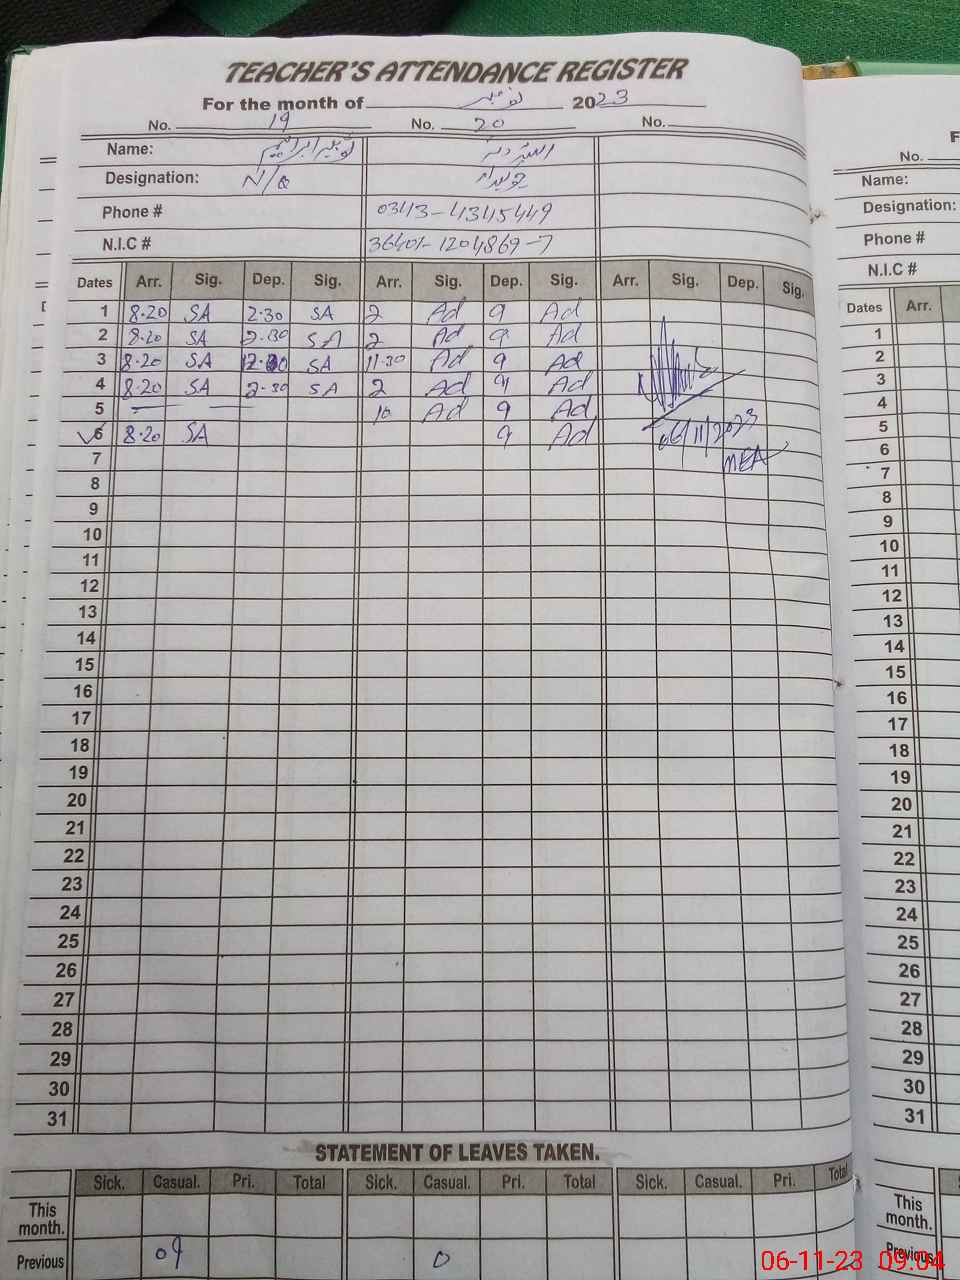 TEACHER'S ATTENDANCE REGISTER
For the month of نومبر 2023
No. 19 No. 20 No.
Name:
Designation: N/Q چوکیدار
Phone # 0343-4345449
N.I.C # 36401-1204869-7
Dates Arr. Sig. Dep. Sig. Arr. Sig. Dep. Sig. Arr. Sig. Dep. Sig.
1 8.20 SA 2.30 SA 2 Ad 9 Ad
2 8.20 SA 2.30 SA 2 Ad 9 Ad
3 8.20 SA 12.30 SA 11.30 Ad 9 Ad
4 8.20 SA 2.30 SA 2 Ad 9 Ad
5 — — 10 Ad 9 Ad
6 8.20 SA 9 Ad 06/11/2023
MEA
7
8
9
10
11
12
13
14
15
16
17
18
19
20
21
22
23
24
25
26
27
28
29
30
31
STATEMENT OF LEAVES TAKEN.
Sick. Casual. Pri. Total Sick. Casual. Pri. Total Sick. Casual. Pri. Total
This
month.
Previous 09 0
No.
Name:
Designation:
Phone #
N.I.C #
Dates Arr.
1
2
3
4
5
6
7
8
9
10
11
12
13
14
15
16
17
18
19
20
21
22
23
24
25
26
27
28
29
30
31
This
month.
Previous
06-11-23 09:04